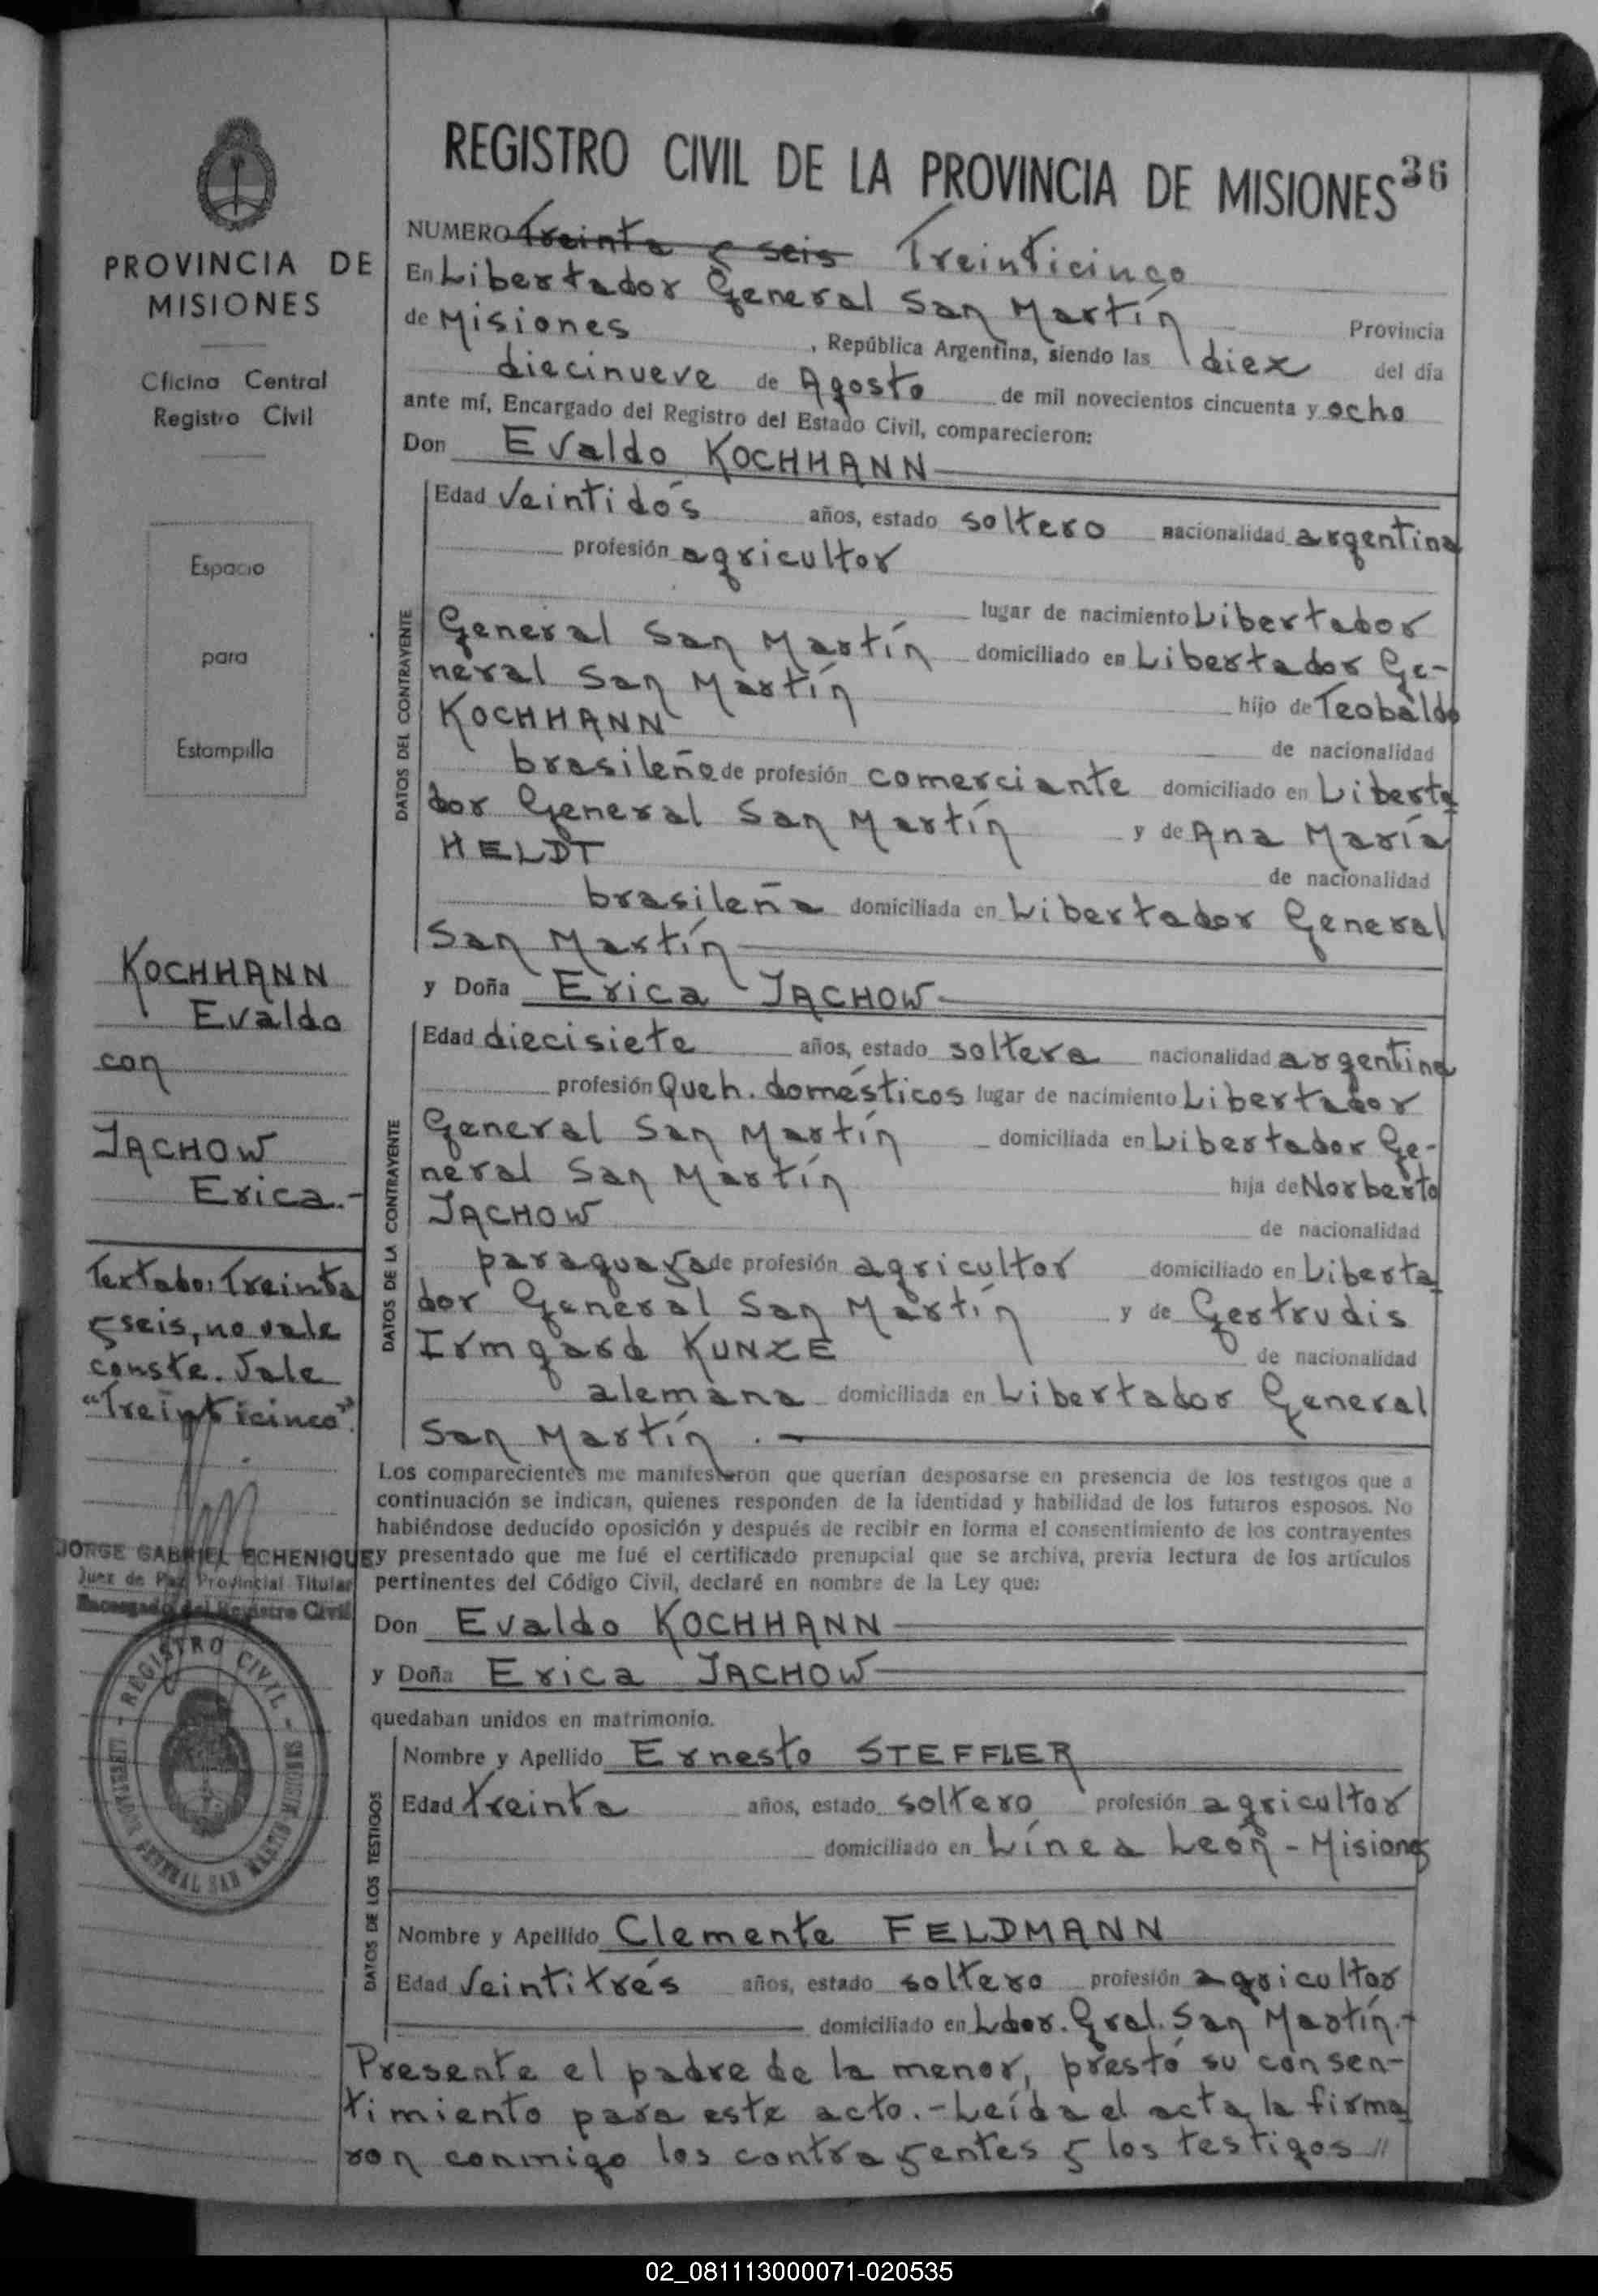 REGISTRO CIVIL DE LA PROVINCIA DE MISIONES 36
NUMERO Treinta y seis Treinticinco
En Libertador General San Martín Provincia
de Misiones, República Argentina, siendo las diez del día
diecinueve de Agosto de mil novecientos cincuenta y ocho
ante mí, Encargado del Registro del Estado Civil, comparecieron:
Don Evaldo KOCHHANN
DATOS DEL CONTRAYENTE
Edad veintidós años, estado soltero nacionalidad argentina
profesión agricultor
lugar de nacimiento Libertador
General San Martín domiciliado en Libertador Ge-
neral San Martín hijo de Teobaldo
KOCHHANN de nacionalidad
brasileño de profesión comerciante domiciliado en Liberta
dor General San Martín y de Ana María
HELDT de nacionalidad
brasileña domiciliada en Libertador General
San Martín
y Doña Erica JACHOW
DATOS DE LA CONTRAYENTE
Edad diecisiete años, estado soltera nacionalidad argentina
profesión Queh. domésticos lugar de nacimiento Libertador
General San Martín domiciliada en Libertador Ge-
neral San Martín hija de Norberto
JACHOW de nacionalidad
paraguaya de profesión agricultor domiciliado en Liberta
dor General San Martín y de Gertrudis
Irmgard KUNZE de nacionalidad
alemana domiciliada en Libertador General
San Martín .-
Los comparecientes me manifestaron que querían desposarse en presencia de los testigos que a
continuación se indican, quienes responden de la identidad y habilidad de los futuros esposos. No
habiéndose deducido oposición y después de recibir en forma el consentimiento de los contrayentes
y presentado que me fué el certificado prenupcial que se archiva, previa lectura de los artículos
pertinentes del Código Civil, declaré en nombre de la Ley que:
Don Evaldo KOCHHANN
y Doña Erica JACHOW
quedaban unidos en matrimonio.
DATOS DE LOS TESTIGOS
Nombre y Apellido Ernesto STEFFLER
Edad treinta años, estado soltero profesión agricultor
domiciliado en Línea León - Misiones
Nombre y Apellido Clemente FELDMANN
Edad veintitrés años, estado soltero profesión agricultor
domiciliado en Ldor. Gral. San Martín.-
Presente el padre de la menor, prestó su consen-
timiento para este acto.- Leída el acta, la firma
ron conmigo los contrayentes y los testigos //
PROVINCIA DE
MISIONES
Oficina Central
Registro Civil
Espacio
para
Estampilla
KOCHHANN
Evaldo
con
JACHOW
Erica.-
Textado: Treinta
y seis, no vale
conste. Vale
"Treinticinco".
JORGE GABRIEL ECHENIQUE
Juez de Paz Provincial Titular
Encargado del Registro Civil
- REGISTRO CIVIL -
LIBERTADOR GENERAL SAN MARTIN MISIONES
02_081113000071-020535